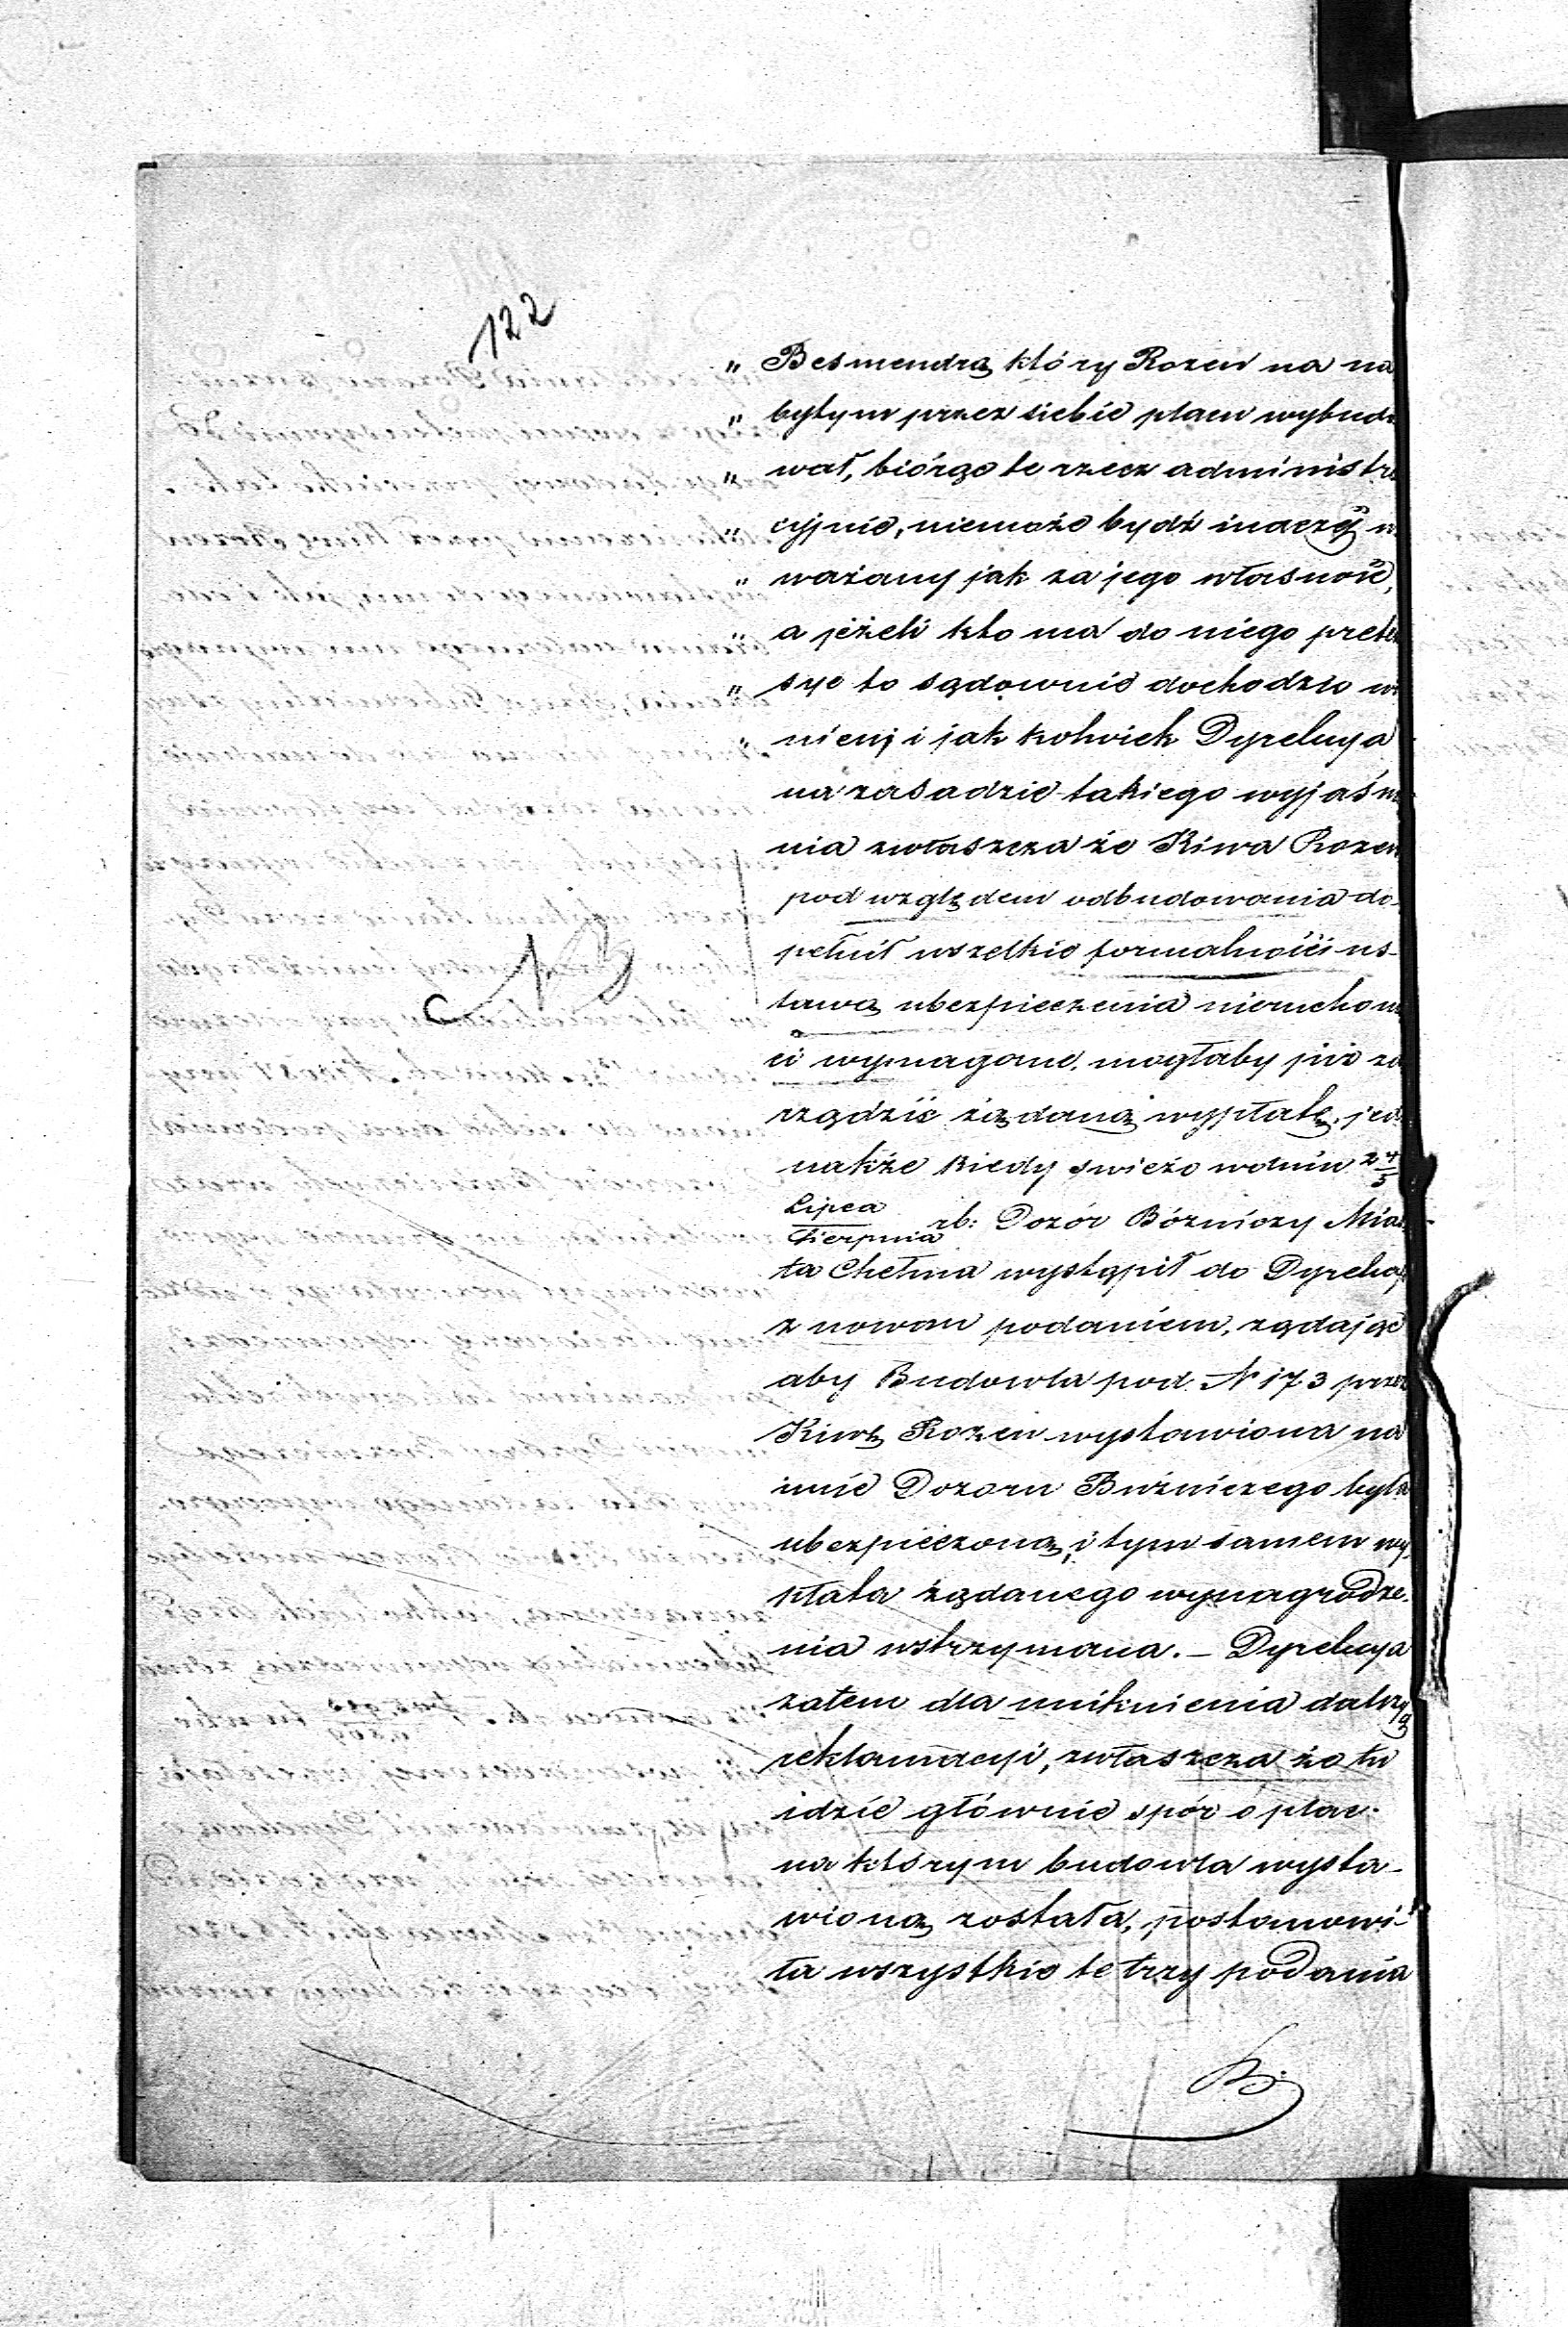 122
" Besmendra, który Rozen na na
" bytym przez siebie placu wybudo
" wał, biórąc te rzecz administra
" cyjnie, niemoże bydź inaczéj u
" ważany jak za jego własność,
" a jeżeli kto ma do niego preten
" syę to sądownie dochodzić wi
" nien; i jak kolwiek Dyrekcya
na zasadzie takiego wyjaśnie
nia zwłaszcza że Kiwa Rozen
pod względem odbudowania do-
pełnił wszelkie formalności us-
tawą ubezpieczenia nieruchomoś
ci wymagane, mogłaby już za
rządzić żądaną wypłatę, jed
nakże kiedy swieżo wdniu 24/5
Lipca/Sierpnia rb: Dozór Bózniczy Mias
ta Chełma wystąpił do Dyrekcyi
z nowem podaniem, rządając
aby Budowla pod N 173 przez
Kiwę Rozen wystawiona na
imie Dozoru Bużniczego była
ubezpieczona, i tym samem wy
kłata żądanego wynagrodze-
nia wstrzymana. – Dyrekcya
zatem dla uniknienia dalszych
reklamacyi, zwłaszcza że tu
idzie głównie spór o plac
na którym budowla wysta-
wioną została, postanowi-
ła wszystkie te trzy podania
NB